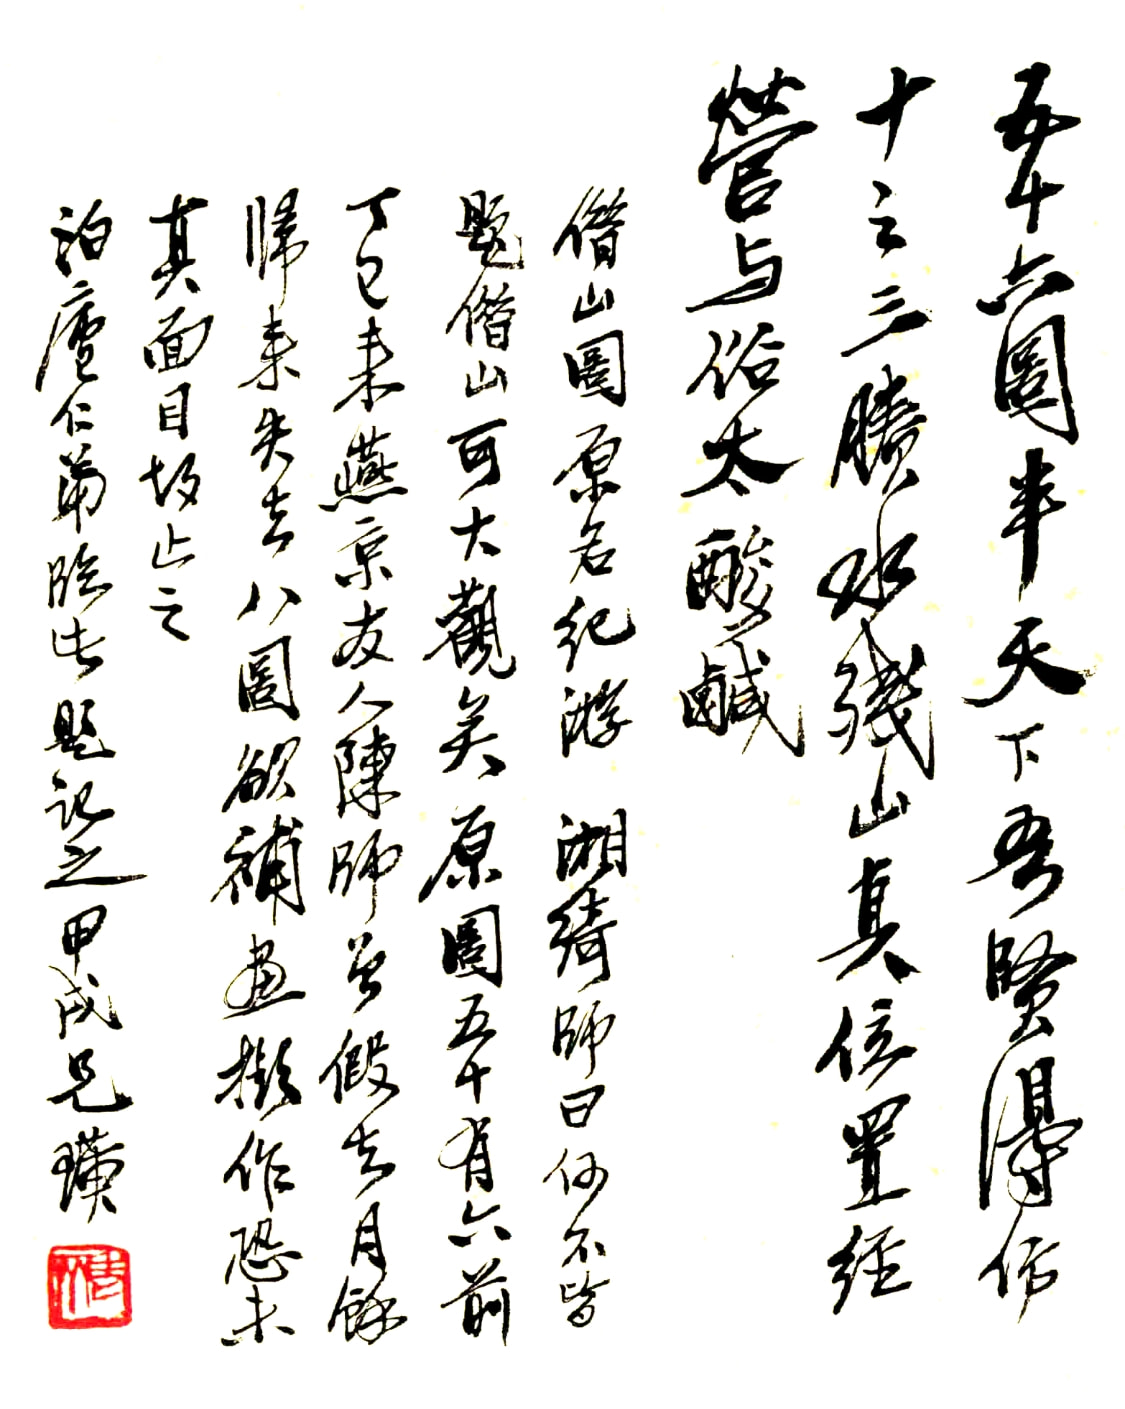 五十六圖半天下吾賢得仿
十之三賸水殘山真位置經
營与俗太酸鹹
借山圖原名紀游 湘綺師曰何不皆
題借山可大觀矣原圖五十有六前
丁巳來燕京友人陳師曾假去月餘
歸來失去八圖欲補畫擬作恐未
真面目故止之
泊廬仁弟臨此題記之甲戌兄璜